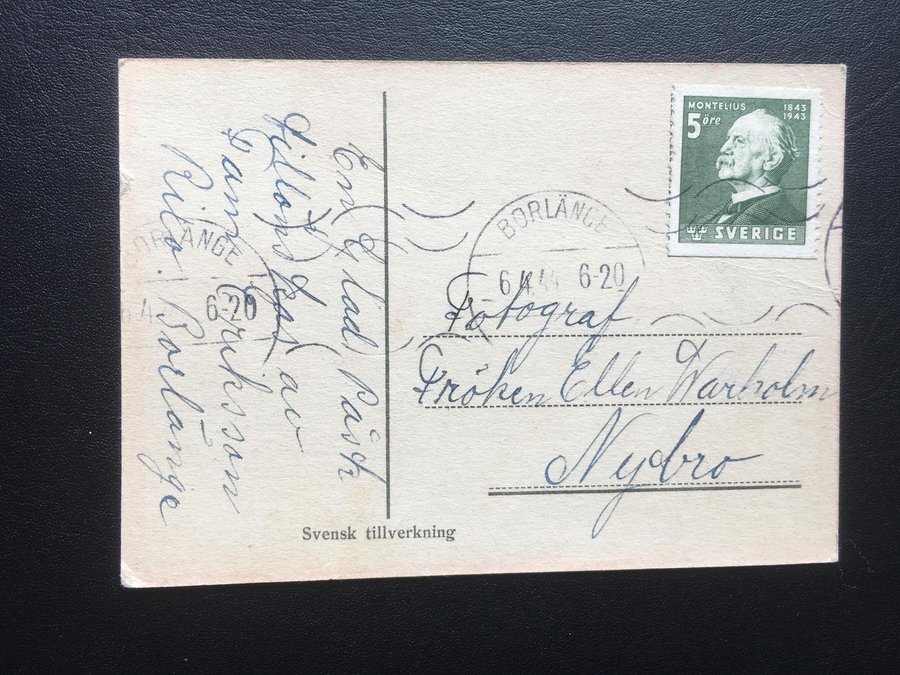 En Glad Påsk
tillönskas av
Fam Eriksson
Borlänge
BORLÄNGE
6-20
Svensk tillverkning
MONTELIUS 1843
1943
5 öre
SVERIGE
BORLÄNGE
6 4 44 6-20
Fotograf
Fröken Ellen Warholm
Nybro